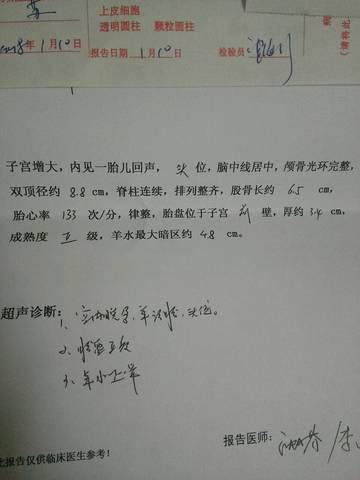 上皮细胞
透明圆柱 颗粒圆柱
年1月10日 报告日期 1月10日 检验员
子宫增大，内见一胎儿回声，头位，脑中线居中，颅骨光环完整，
双顶径约 8.8 cm，脊柱连续，排列整齐，股骨长约 6.5 cm，
胎心率 133 次/分，律整，胎盘位于子宫 前 壁，厚约 3.4 cm，
成熟度 II 级，羊水最大暗区约 4.8 cm。
超声诊断：
1、宫内晚孕，单活胎，头位。
2、胎盘II级
3、羊水
报告医师：
此报告仅供临床医生参考！